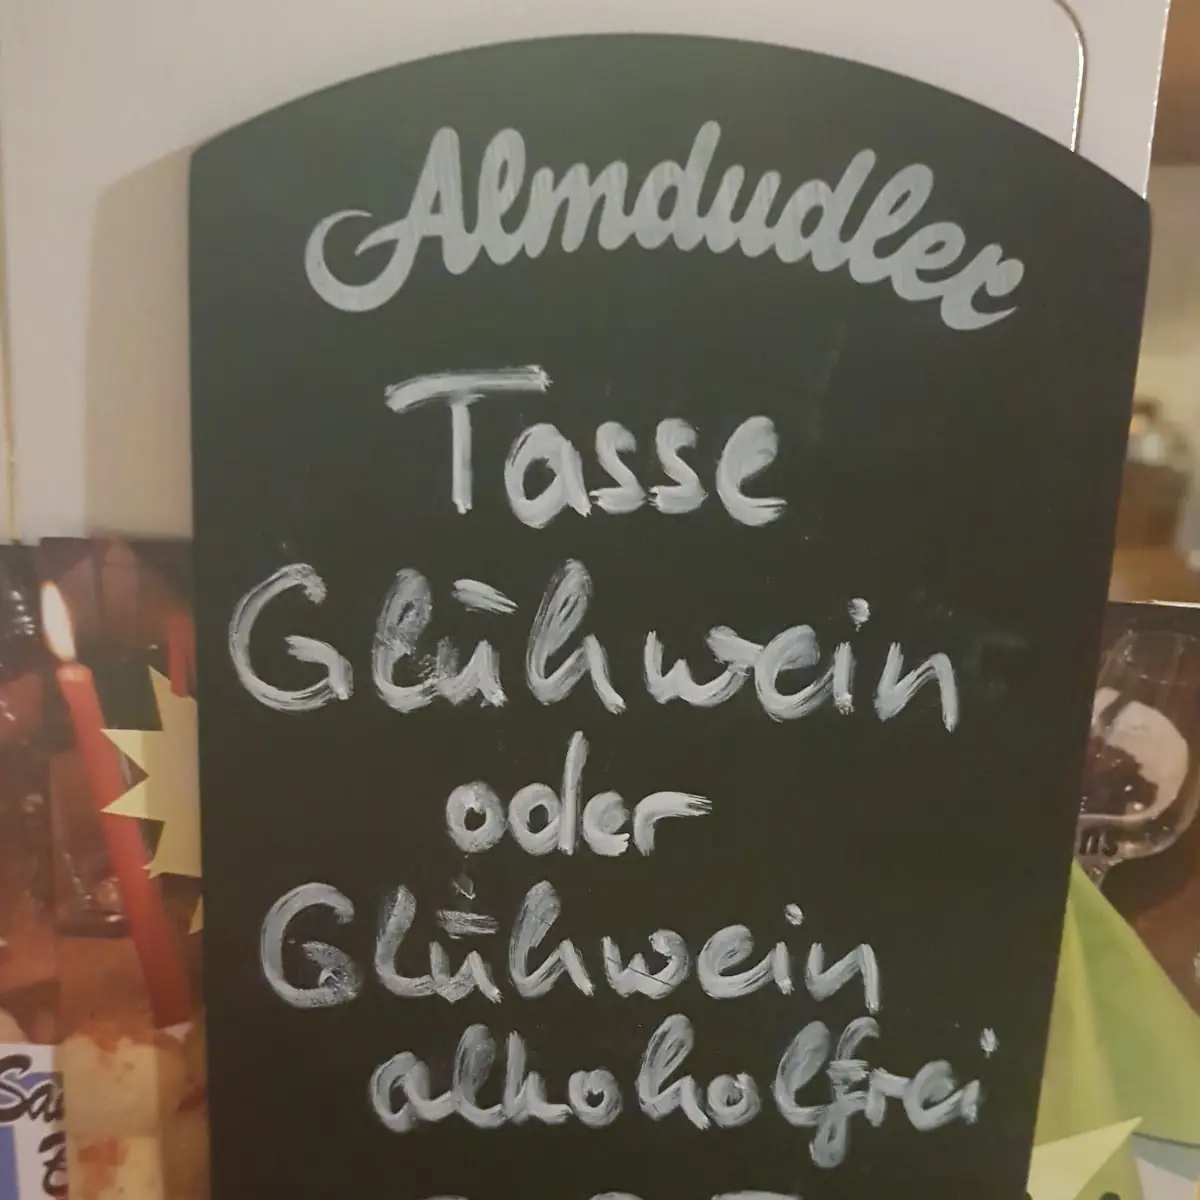 Almdudler
Tasse
Glühwein
oder
Glühwein
alkoholfrei